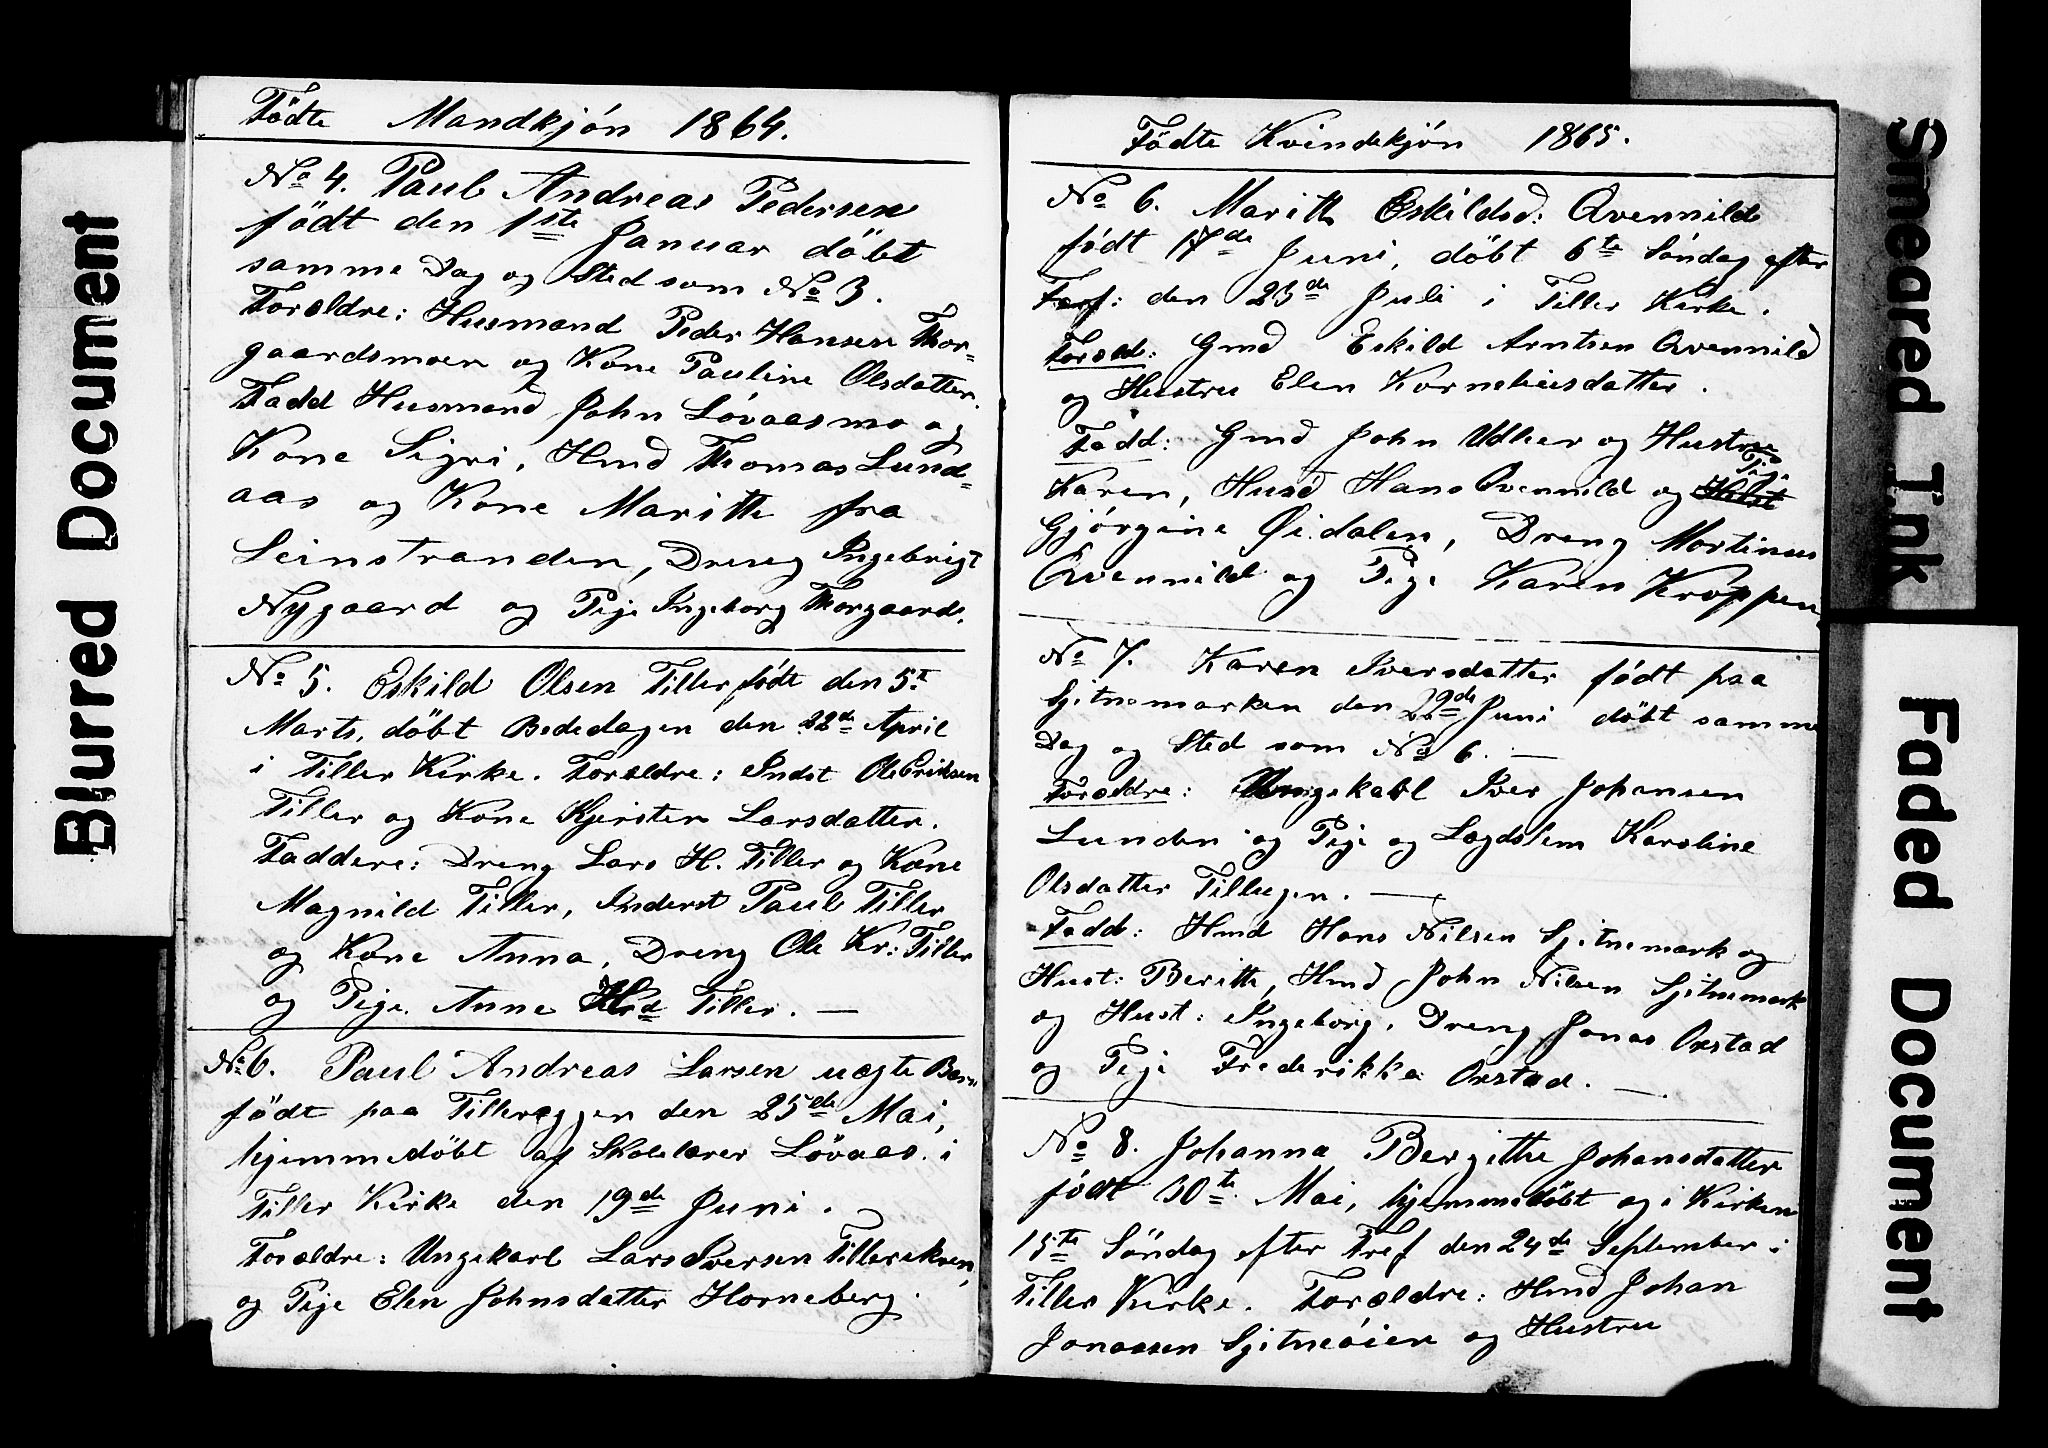 Blurred Document
Födte Mandkjón 1864.
No 4. Paul Andreas Pedersen
födt den 1ste Januar döbt
samme Dag og Sted som No 3.
Forældre: Husmand Peder Hansen Thor-
gaardsmoen og Kone Pauline Olsdatter.
Fadd Husmand John Lóvaasmo og
Kone Sigri, Hmd Thomas Lund-
aas og Kone Maritte fra
Leinstranden, Dreng Ingebrigt
Nygaard og Pige Ingeborg Thorgaards.
No 5. Eskild Olsen Tiller födt den 5t
Marts, döbt Bededagen den 22de April
i Tiller Kirke. Forældre: Indst Ole Eriksen
Tiller og Kone Kjersten Larsdatter.
Faddere: Dreng Lars H. Tiller og Kone
Magnild Tiller, Inderst Paul Tiller
og Kone Anna, Dreng Ole Kr: Tiller
og Pige Anne Tiller. —
No 6. Paul Andreas Larsen uægte Barn
födt paa Tillereggen den 25de Mai,
hjemmedöbt af Skolelærer Lövaas. i
Tiller Kirke den 19de Juni.
Forældre: Ungekarl Lars Iversen Tillerekren,
og Pige Elen Johnsdatter Horneberg.
Födte Kvindekjón 1865.
No 6. Marith Eskildsd: Qvennild
fódt 17de Juni, döbt 6te Söndag efter
Tref: den 23de Juli i Tiller Kirke.
Foræld: Gmd Eskild Arntsen Qvennild
og Hustru Elen Korneliusdatter.
Fadd: Gmd John Udler og Hustru
Karen, Husd Hans Qvennild og Pige
Gjórgine Öidalen, Dreng Mortinus
Qvennild og Pige Karen Kroppen,
No 7. Karen Iversdatter födt paa
Sjitnemarken den 22de Juni döbt samme
Dag og Sted som No 6. —
Forældre: Ungekarl Iver Johansen
Lunden og Pige og Lægdslem Karoline
Olsdatter Tillugen. —
Fadd: Hmd Hans Nilsen Sjitnemark og
Hust: Beritte, Hmd John Nilsen Sjitnemark
og Hust: Ingeborg, Dreng Jonas Oxstad
og Pige Frederikke Oxstad. —
No 8. Johanna Bergitte Johansdatter
födt 30te Mai, hjemmedöbt og i Kirken
15te Söndag efter Tref den 24de September i
Tiller Kirke. Forældre: Hmd Johan
Jonassen Sjitneóien og Hustru
Smeared Ink
Faded Document